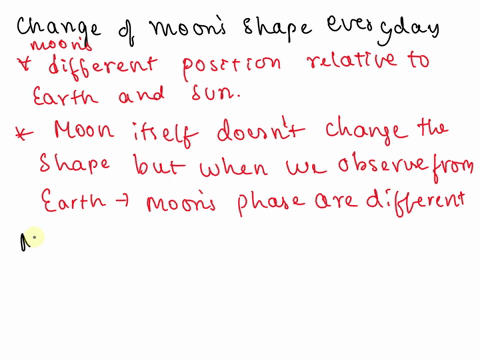 Change of moon's shape everyday
moon's
* different position relative to
Earth and sun.
* Moon itself doesn't change the
shape but when we observe from
Earth → moon's phase are different